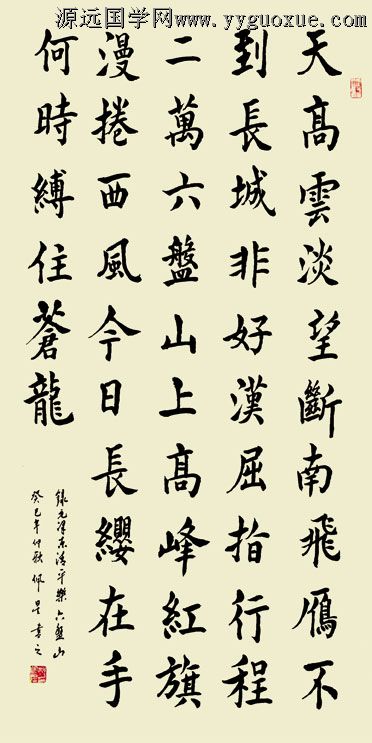 源远国学网www.yyguoxue.com
天髙雲淡望斷南飛鴈不
到長城非好漢屈指行程
二萬六盤山上髙峰紅旗
漫捲西風今日長纓在手
何時縛住蒼龍
錄毛泽东清平樂六盤山
癸巳年仲秋佩書之